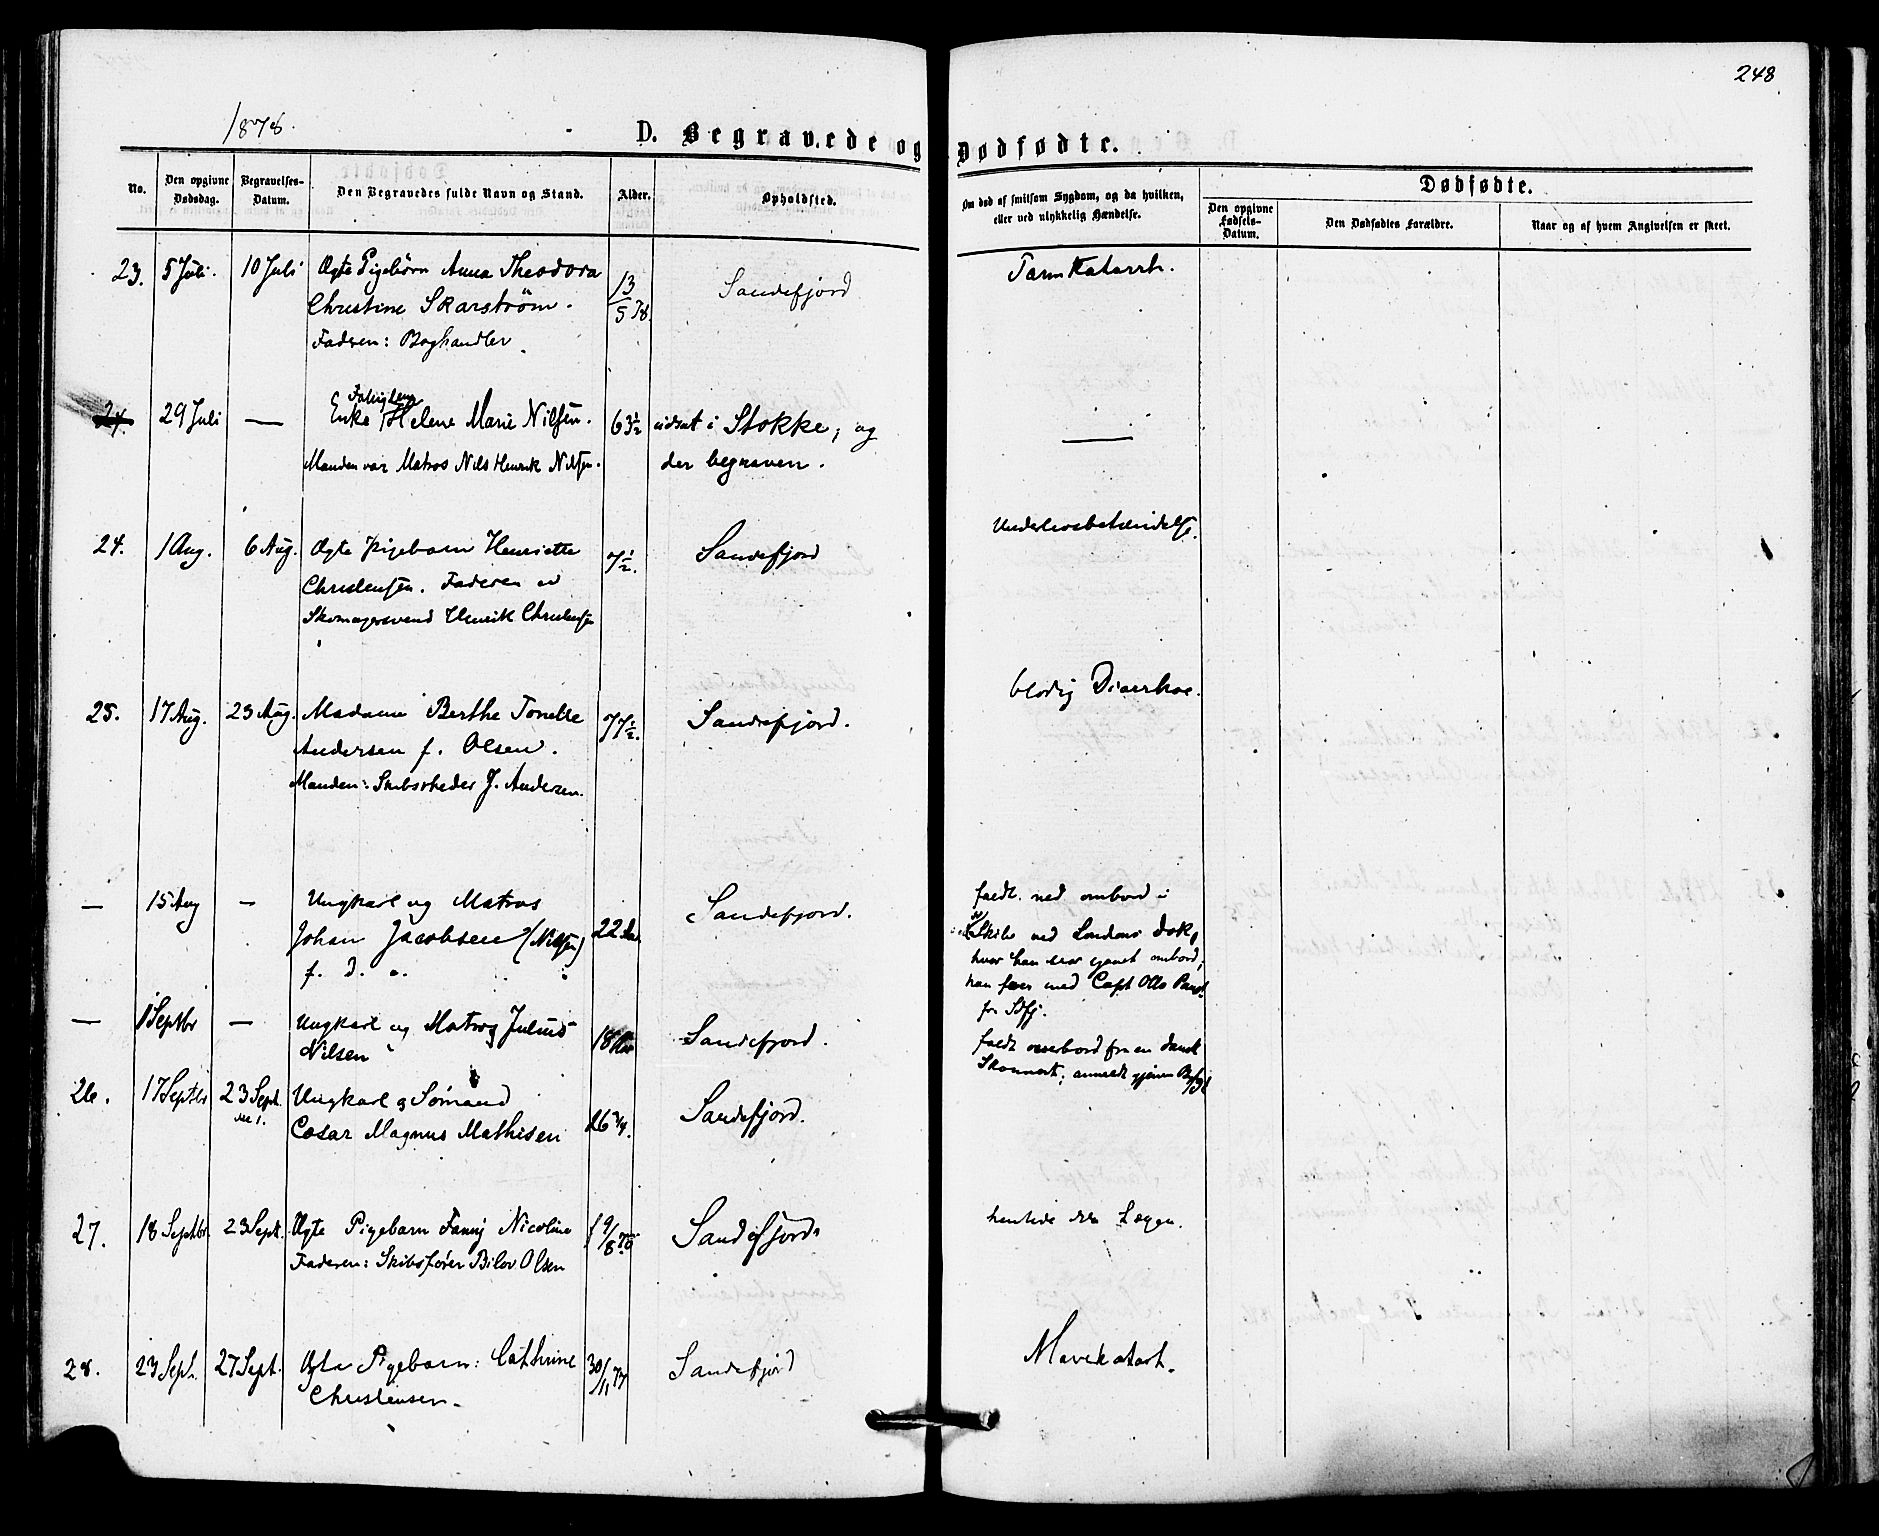 248
1878.
D. Begravede og Dødfødte.
No.
Den opgivne Dødsdag.
Begravelses-Datum.
Den Begravedes fulde Navn og Stand.
Alder.
Opholdsted.
Om død af smitsom Sygdom, og da hvilken,
eller ved ulykkelig Hændelse.
Dødfødte.
Den opgivne Fødsels-Datum.
Den Dødfødtes Forældre.
Naar og af hvem Angivelsen er skeet.
23. 5 Juli. 10 Juli Ægte Pigebarn Anna Theodora 13/5 78. Sandefjord Tarmkatarrh.
Christine Skarstrøm.
Faderen: Boghandler.
24. 29 Juli — Enke Helene Marie Nilsen. 63½ udsat i Stokke, og —
Manden var Matros Nils Henrik Nilsen. der begraven.
24. 1 Aug. 6 Aug. Ægte Pigebarn Henriette 7½. Sandefjord Underlivsbetændelse.
Christensen. Faderen er
Skomagersvend Henrik Christensen
25. 17 Aug. 23 Aug. Madame Berthe Tonette 77½. Sandefjord. blodig Diarrhoe.
Andersen f. Olsen.
Manden: Skibsrheder J. Andersen.
— 15 Aug — Ungkarl og Matros 22 Sandefjord. faldt ned ombord i
Johan Jacobsen (Nilsen) Skib ved Londons Dok,
f. D. hvor han var ombord,
han foer med Capt Olls
fra Sdfj.
— 1 Septbr — Ungkarl og Matros Julius 18 Sandefjord. faldt overbord fra en dansk
Nilsen Skonnert, anmeldt gjennem
26. 17 Septbr 23 Sept. Ungkarl og Sømand 26¾. Sandefjord.
No 1.
Cæsar Magnus Mathisen
27. 18 Septbr. 23 Sept. Ægte Pigebarn Fanny Nicoline f 9/8 75 Sandefjord. hentede ikke Lægen.
Faderen: Skibsfører Bilov Olsen
28. 23 Sept. 27 Sept. Ægte Pigebarn: Cathrine 30/11 77 Sandefjord Mavekatarh.
Christensen.